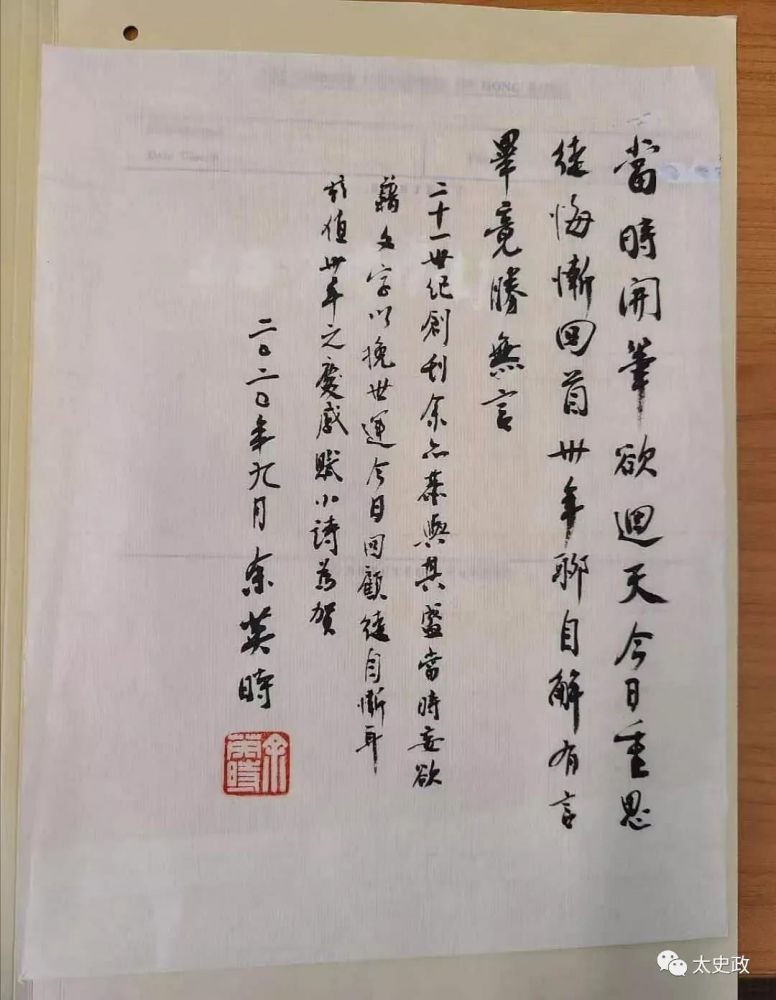 當時開筆欲迴天今日重思
徒悔慚回首卅年聊自解有言
畢竟勝無言
二十一世紀創刊余亦恭與其盛當時妄欲
藉文字以挽世運今日回顧徒自慚耳
茲值卅年之慶感賦小詩為賀
二〇二〇年九月余英時
余英時
太史政